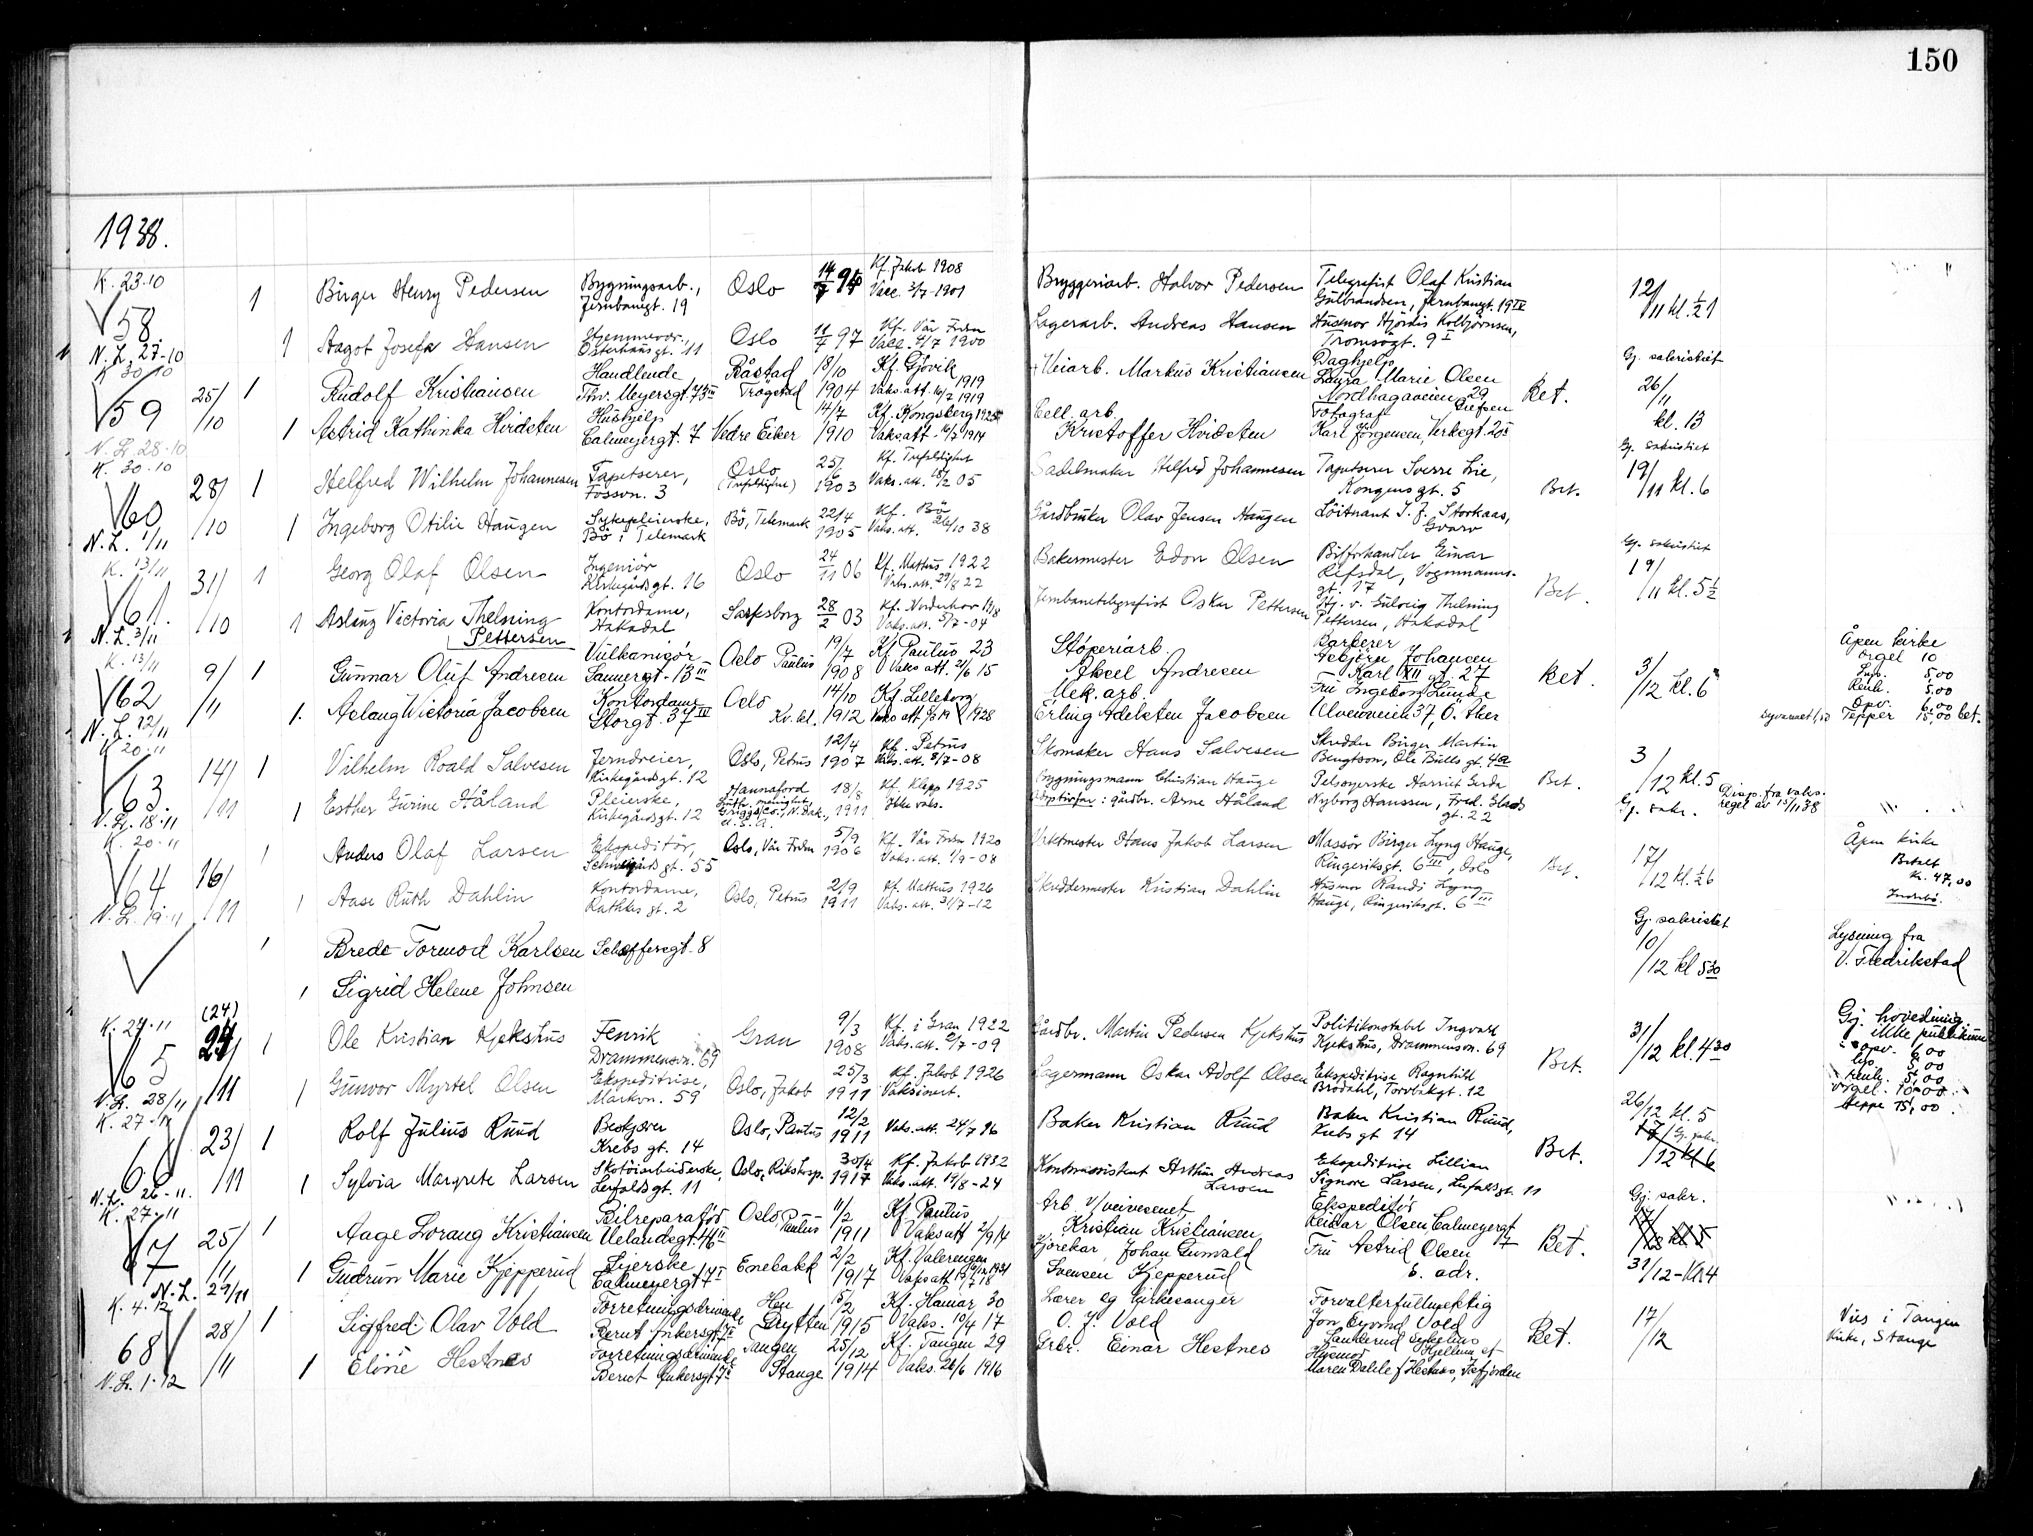 150
1938.
K. 23.10
58
N. L. 27-10
1 Birger Henry Pedersen Bygningsarb., Jernbanegt. 19 Oslo 14/7 95 Kf. Jakob 1908 Vacc. 3/7-1901 Bryggeriarb. Halvor Pedersen Telegrafist Olaf Kristian Gulbrandsen, Jernbanegt. 19 IV 12/11 kl. ½1
1 Aagot Josefa Hansen Hjemmevær. Osterhausgt. 11 Oslo 11/7 97 Kf. Vår Frden Vacc. 4/7 1900 Lagerarb. Andreas Hansen Husmor Hjördis Kolbjörnsen, Tromsögt. 9 I
K 30/10
59
N. L. 28.10
25/10 1 Rudolf Kristiansen Handlende Thv. Meyersgt. 73 III Båstad Trögstad 18/10 1904 Kf. Gjövik 1919 Vaks.att. 1919 Veiarb. Markus Kristiansen Daghjelp Laura Marie Olsen Nordhagaveien 29 Grefsen Bet. Gj. sakristiet 26/11 kl. 13
1 Astrid Kathinka Hvidsten Hushjelp Calmeyergt. 7 Nedre Eiker 14/7 1910 Kf. Kongsberg 1925 Vaks.att. 1914 Cell. arb. Kristoffer Hvidsten Fotograf Karl Jörgensen, Verksgt. 20
K. 30.10
60
N. L. 1/11
28/10 1 Helfred Wilhelm Johannesen Tapetserer, Fossvn. 3 Oslo (Trefoldighet) 25/6 1903 Kf. Trefoldighet Vaks. att. 18/2 05 Sadelmaker Helfred Johannesen Tapetserer Sverre Lie, Kongensgt. 5 Bet. Gj. sakristiet 19/11 kl. 6
1 Ingeborg Otilie Haugen Sykepleierske, Bö i Telemark Bö, Telemark 22/4 1905 Kf. Bö Vaks. att. 26/10 38 Gårdbruker Olav Jensen Haugen Löitnant I. J. Storkaas, Gvarv
K. 13/11
61.
N. L. 3/11
31/10 1 Georg Olaf Olsen Ingeniör Kirkegårdsgt. 16 Oslo 24/11 06 Kf. Mattus 1922 Vaks. att. 29/8 22 Bakermester Edon Olsen Bilforhandler Einar Refsdal, Vognmannsgt. 17 Bet. Gj. sakristiet 19/11 kl. 5½
1 Aslaug Victoria Thelning Pettersen Kontordame, Hakadal Sarpsborg 28/2 03 Kf. Norderhov Vaks. att. 5/7-04 Jernbanetelegrafist Oskar Pettersen Stj. v. Solveig Thelning Pettersen, Hakadal
K. 13/11
62
N. L. 12/11
9/11 1 Gunnar Oluf Andresen Vulkanisör Sannergt. 13 III Oslo Paulus 19/7 1908 Kf Paulus 23 Vaks att. 21/6 15 Stöperiarb. Aksel Andresen Barberer Asbjörn Johansen Karl XII gt. 27 Bet. 3/12 kl. 6 Åpen kirke orgel 10 Lys. 5,00 Renh. 5,00 Opv. 6,00 Tepper 15,00 bet.
1. Aslaug Victoria Jacobsen Kontordame Storgt. 37 IV Oslo Kv. kl. 14/10 1912 Kf. Lilleborg 1928 Mek. arb. Erling Adelsten Jacobsen Fru Ingeborg Lunde Ulvenveien 37, Ö. Aker
K 20.11
63.
N. L. 18.11
14/11 1 Vilhelm Roald Salvesen Jerndreier, Kirkegårdsgt. 12 Oslo, Petrus 12/4 1907 Kf. Petrus Vaks. att. 8/7-08 Skomaker Hans Salvesen Skredder Birger Martin Bengtson, Ole Bulls gt. 4a Bet. 3/12 kl. 5 Gj. sakr. Disp. fra vaks. regel av 15/11 38
1 Esther Gurine Håland Pleierske, Kirkegårdsgt. 12 Hannaford luth. menighet Griggs Co., N. Dak., U. S. A. 18/8 1911 Kf. Klepp 1925 Ikke vaks. Bygningsmann Christian Hauge Adoptivfar: gårdbr. Arne Håland Pelssyerske Harriet Gerda Nyborg Hanssen, Fred. Glads gt. 22
K. 20.11
64
N. L. 19.11
16/11 1 Anders Olaf Larsen Ekspeditör, Schweigårdsgt. 55 Oslo, Vår Frden 5/9 1906 Kf. Vår Frden 1920 Vaks. att. 1/9-08 Vaktmester Hans Jakob Larsen Massör Birger Lyng Hauge, Ringeriksgt. 6 III, Oslo Bet. 17/12 kl. ½6 Åpen kirke Betalt kr. 47,00
1 Aase Ruth Dahlin Kontordame, Rathkes gt. 2 Oslo, Petrus 2/9 1911 Kf. Mattus 1926 Vaks. att. 31/7-12 Skreddermester Kristian Dahlin Husmor Randi Lyng Hauge, Ringeriksgt. 6 III
1 Brede Tormod Karlsen Schaffersgt. 8 Gj. sakristiet 10/12 kl 530 Lysning fra V. Fredrikstad
1 Sigrid Helene Johnsen
K. 27.11
65
N. L. 28/11
(24)
24/11 1 Ole Kristian Kjekshus Fenrik Drammensvn. 69 Gran 9/3 1908 Kf. i Gran 1922 Vaks. att. 2/7-09 Gårdbr. Martin Pedersen Kjekshus Politikonstabel Ingvald Kjekshus, Drammensvn. 69 Bet. 31/12 kl. 430 Gj. hovedinng. ikke publikum opv. 6,00 Lys. 5,00 Renh. 5,00 orgel. 10,00 Teppe 15,00.
1 Gunvor Myrtel Olsen Ekspeditrise, Markvn. 59 Oslo, Jakob 25/3 1911 Kf. Jakob 1926 Vaksinert. Lagermann Oskar Adolf Olsen Ekspeditrise Ragnhild Brodahl, Torvbakgt. 12
K. 27.11
66
N. L. 26-11.
23/11 1 Rolf Julius Ruud Bestyrer Krebs gt. 14 Oslo, Paulus 12/2 1911 Vaks. att. 24/7 16 Baker Kristian Ruud Baker Kristian Ruud, Krebs gt 14 Bet. 26/12 kl. 5 17/12 kl 6 Gj. sakr.
1 Sylvia Margrete Larsen Skotöiarbeiderske, Lerfaldsgt. 11 Oslo, Rikshosp. 30/4 1917 Kf. Jakob 1932 Vaks. att. 19/8-24 Kontorassistent Arthur Andreas Larsen Ekspeditrise Lillian Signore Larsen, Lerfaldsgt. 11
K. 27.11
67
N. L. 29/11
25/11 1 Aage Lorang Kristiansen Bilreparatör Uelandsgt. 46 II Oslo, Paulus 11/2 1911 Kf Paulus Vaks att 2/9 14 Arb. v/ veivesenet Kristian Kristiansen Ekspeditör Reidar Olsen, Calmeyergt 7 Bet. Gj. sakr. 31/12-kl. 4
1 Gudrun Marie Kjepperud Sierske Calmeyergt 7 I Enebakk 2/2 1917 Kf. Vålerengen 1931 Kjörekar Johan Gunvald Svensen Kjepperud Fru Astrid Olsen s. adr.
K. 4.12
68
N. L. 1.12
28/11 1 Sigfred Olav Vold Forretningsdrivende Bernt Ankersgt 7 I Hen Grytten 5/2 1915 Kf. Hamar 30 Vaks. 10/4 17 Lærer og kirkesanger O. J. Vold Forvalterfullmektig Jon Eyvind Vold Sanderud Sykehus Bet. 17/12 Vies i Tangen kirke, Stange
1 Eline Hestnes Forretningsdrivende Bernt Ankersgt 7 I Tangen Stange 25/12 1914 Kf. Tangen 29 Vaks. 26/6 1916 Grbr. Einar Hestnes Husmor Maren Dahle f. Hestnes, Isfjorden